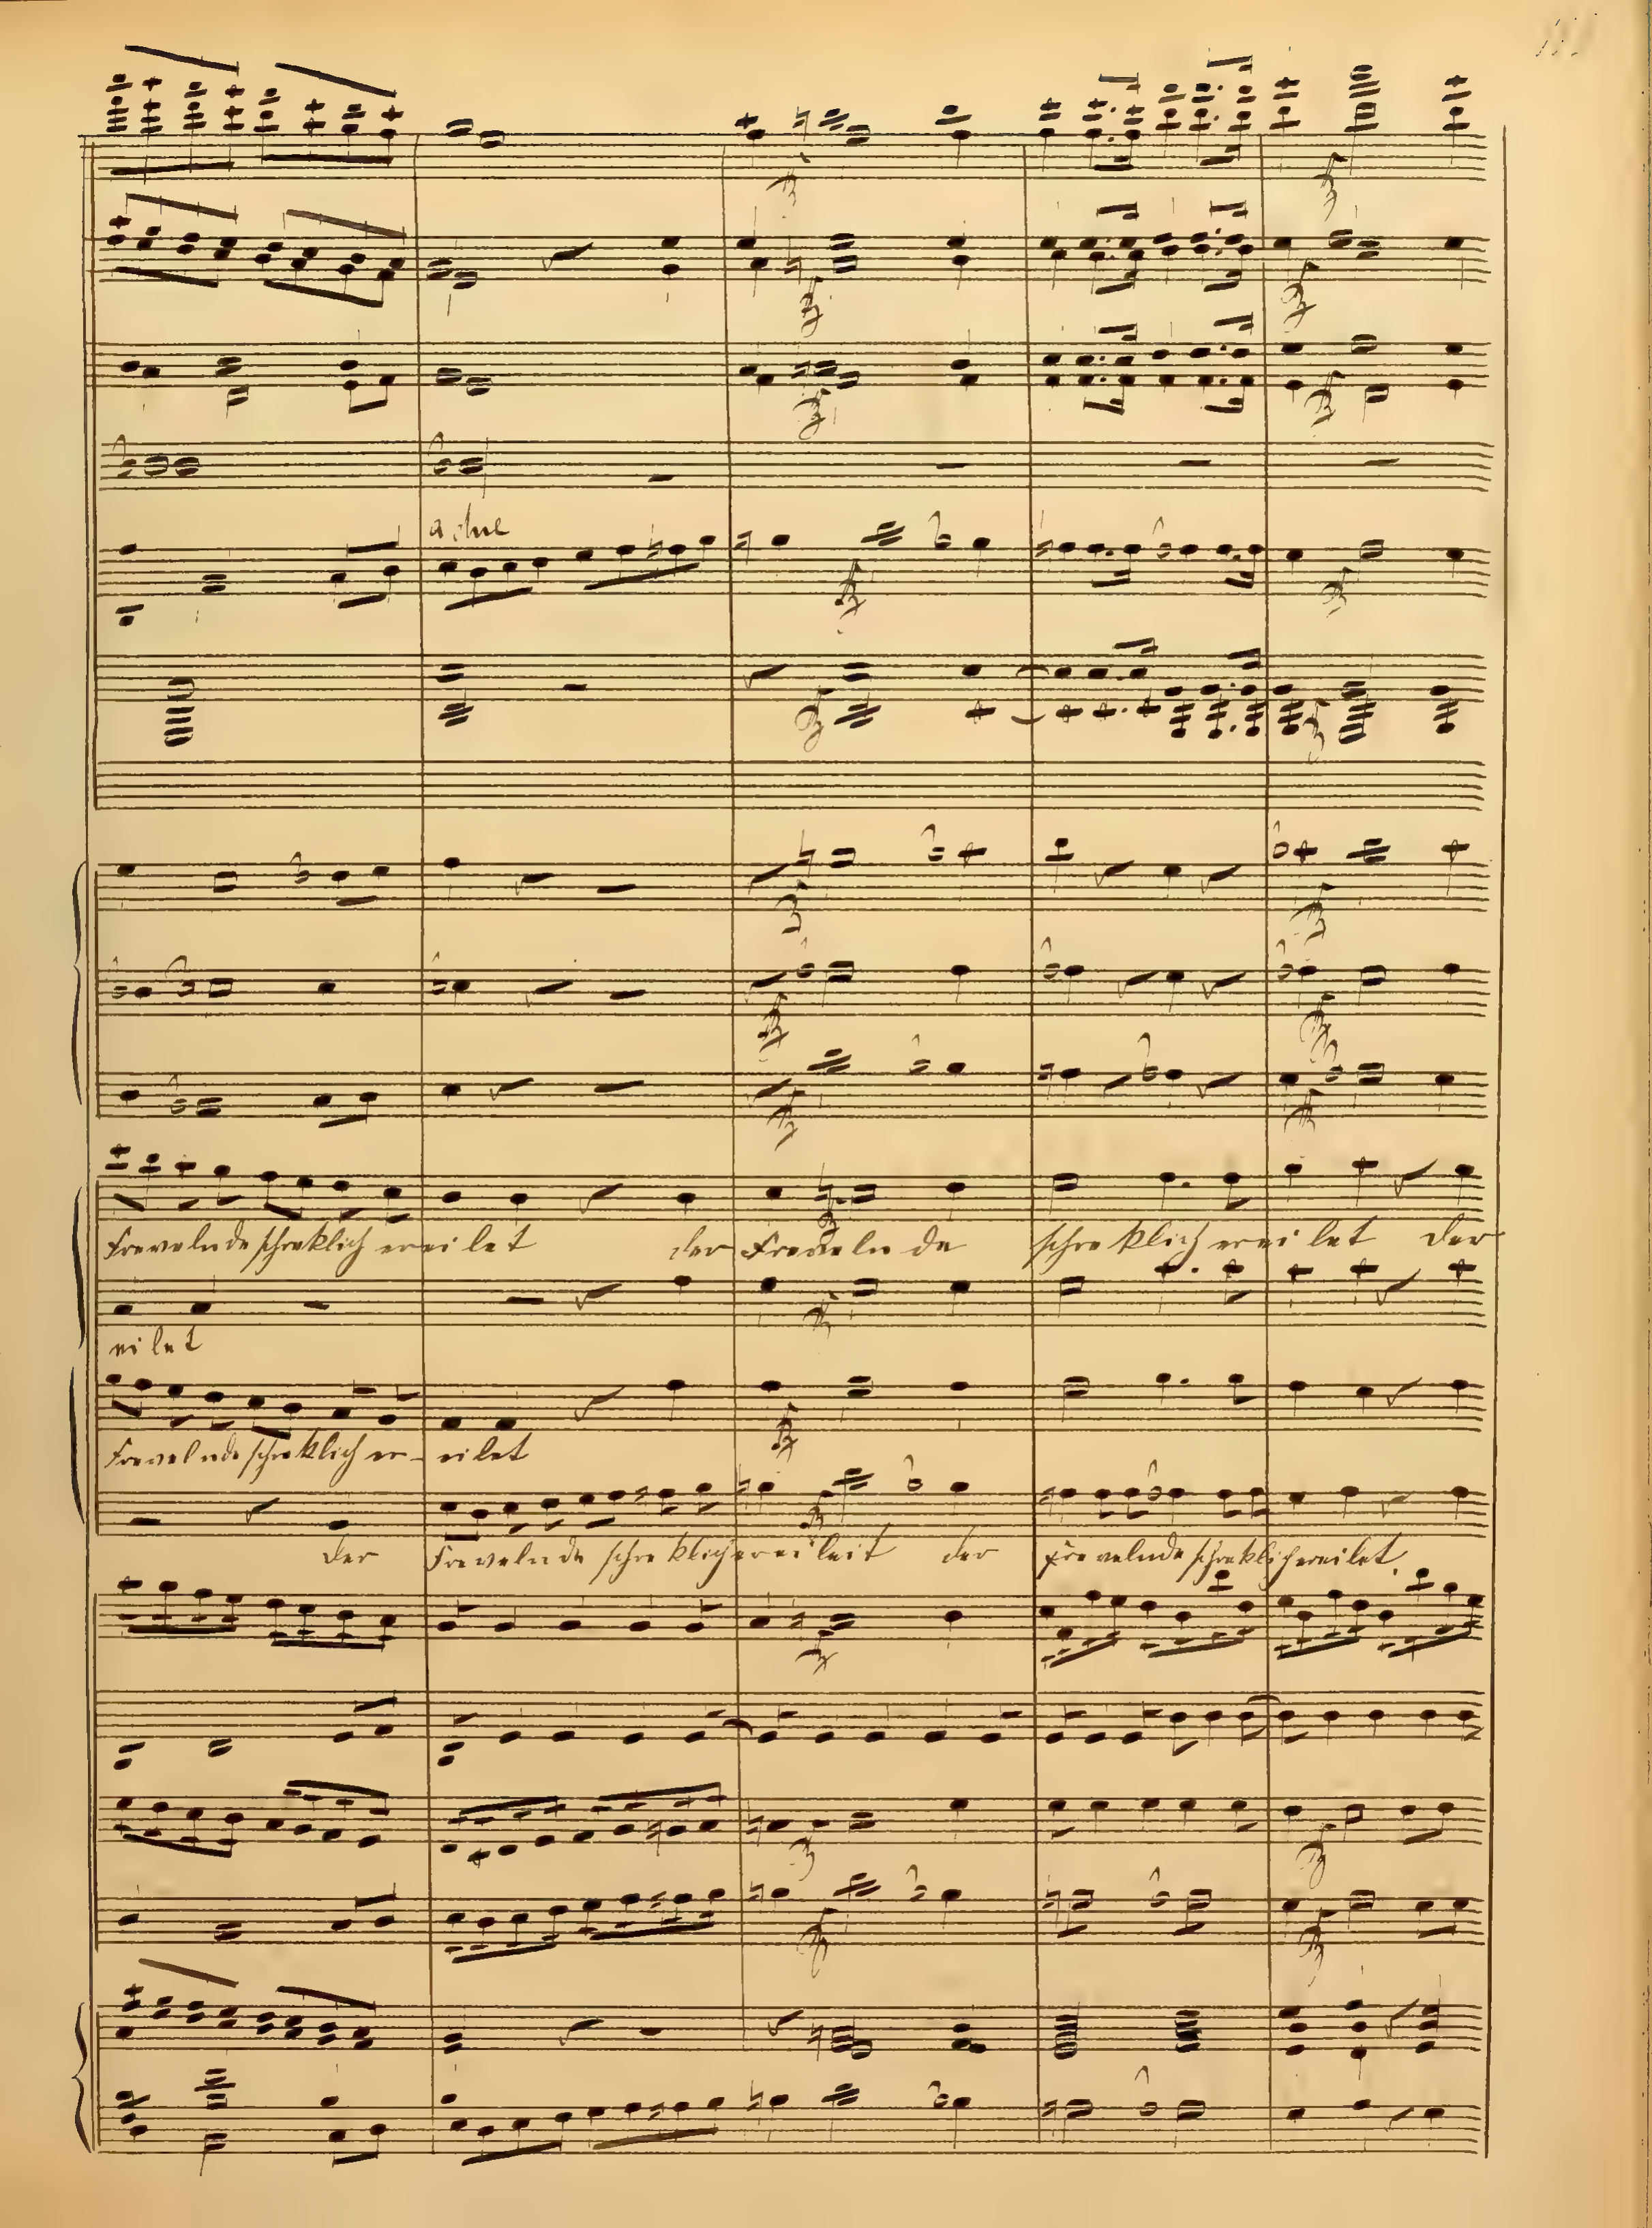 a due
Frevelnde schreklich ereilet der Frevelnde schreklich ereilet der
eilet
Frevelnde schreklich er- eilet
der Frevelnde schreklich ereileit der Frevelnde schreklich ereilet